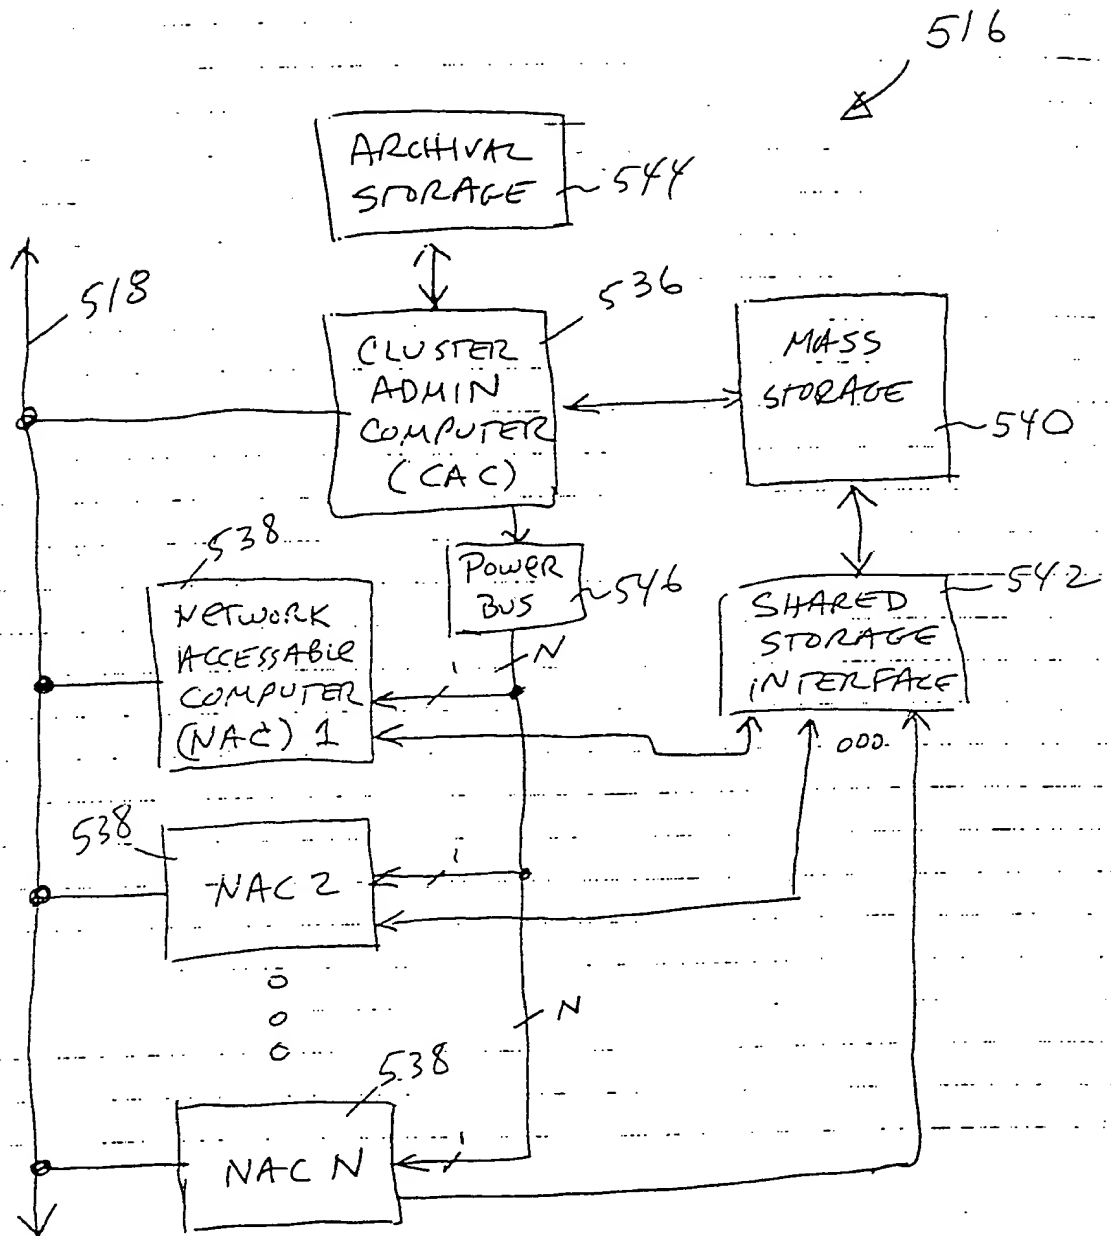 516
ARCHIVAL
STORAGE
544
518
536
CLUSTER
ADMIN
COMPUTER
(CAC)
MASS
STORAGE
540
538
POWER
BUS
546
542
SHARED
STORAGE
INTERFACE
NETWORK
ACCESSABLE
COMPUTER
(NAC) 1
N
1
538
NAC 2
1
N
538
NAC N
1